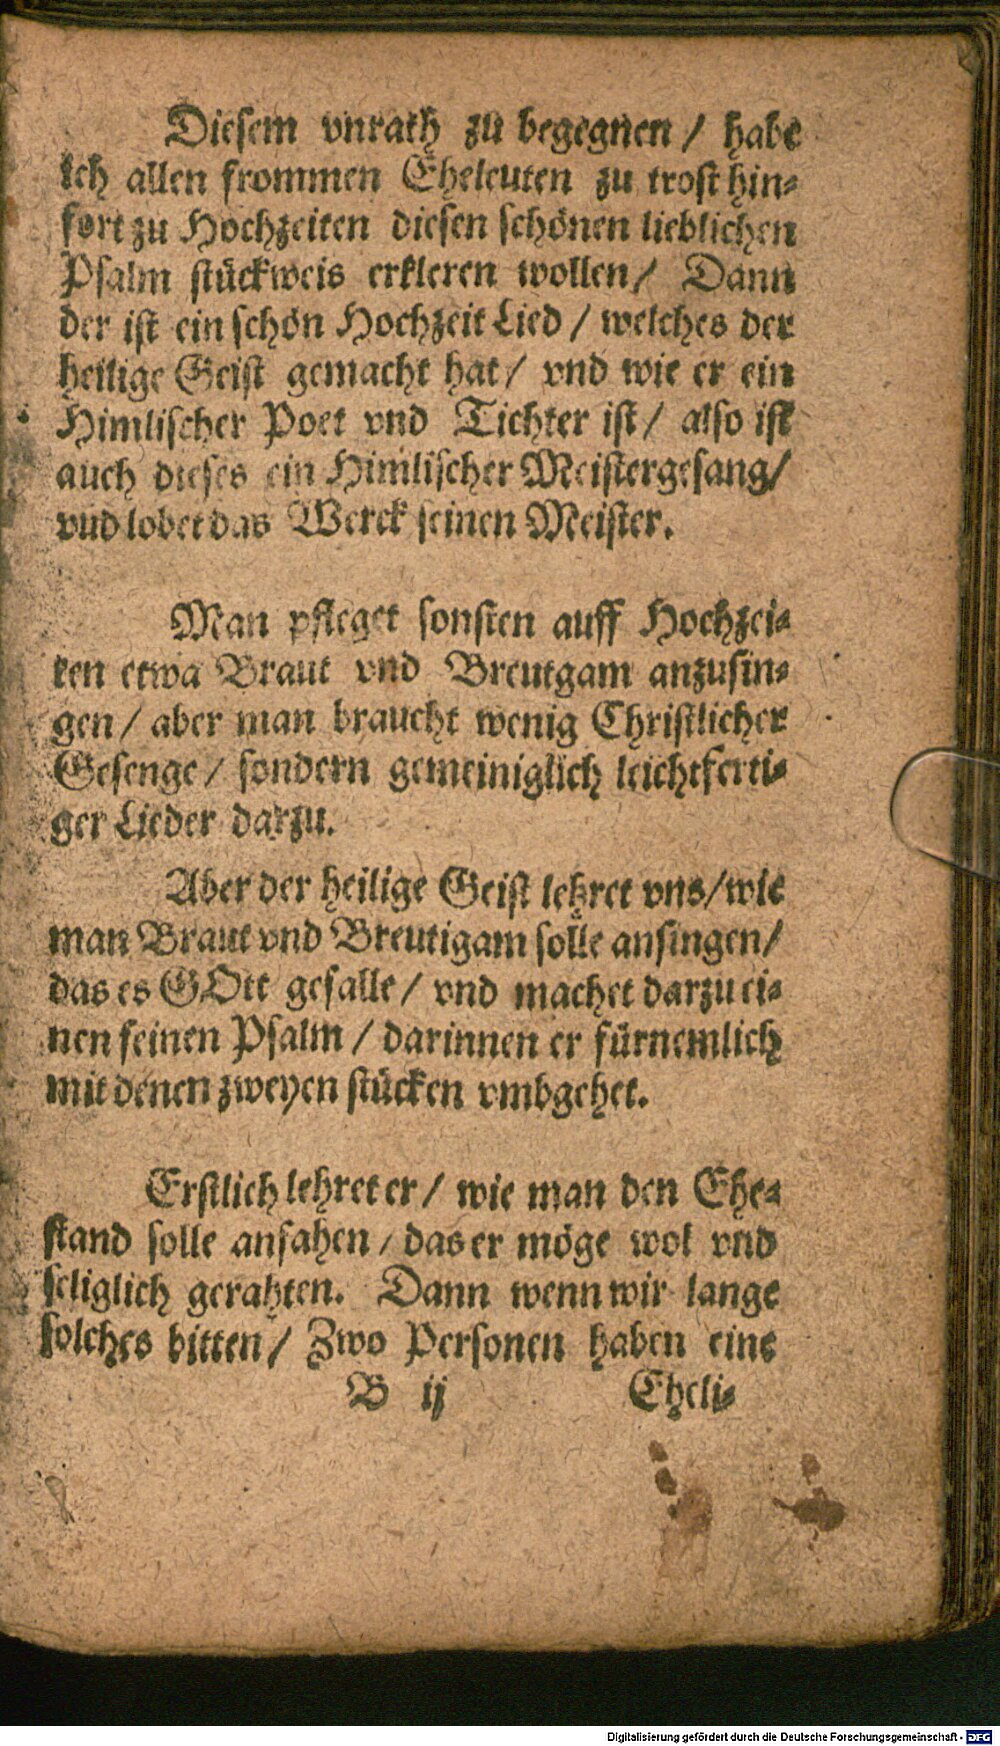 Diesem vnrath zu begegnen / habe
ich allen frommen Eheleuten zu trost hin-
fort zu Hochzeiten diesen schönen lieblichen
Psalm stückweis erkleren wollen / Dann
der ist ein schön Hochzeit Lied / welches der
heilige Geist gemacht hat / vnd wie er ein
Himlischer Poet vnd Tichter ist / also ist
auch dieses ein Himlischer Meistergesang /
vnd lobet das Werck seinen Meister.
Man pfleget sonsten auff Hochzei-
ten etwa Braut vnd Breutgam anzusin-
gen / aber man braucht wenig Christlicher
Gesenge / sondern gemeiniglich leichtferti-
ger Lieder darzu.
Aber der heilige Geist lehret vns / wie
man Braut vnd Breutigam solle ansingen /
das es GOtt gefalle / vnd machet darzu ei-
nen feinen Psalm / darinnen er fürnemlich
mit denen zweyen stücken vmbgehet.
Erstlich lehret er / wie man den Ehe-
stand solle anfahen / das er möge wol vnd
seliglich gerahten. Dann wenn wir lange
solches bitten / Zwo Personen haben eine
B ij Eheli-
Digitalisierung gefördert durch die Deutsche Forschungsgemeinschaft - DFG